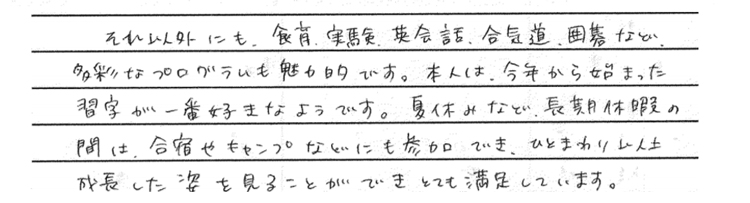 それ以外にも、食育、実験、英会話、合気道、囲碁など、
多彩なプログラムも魅力的です。本人は、今年から始まった
習字が一番好きなようです。夏休みなど、長期休暇の
間は、合宿やキャンプなどにも参加でき、ひとまわり以上
成長した姿を見ることができとても満足しています。